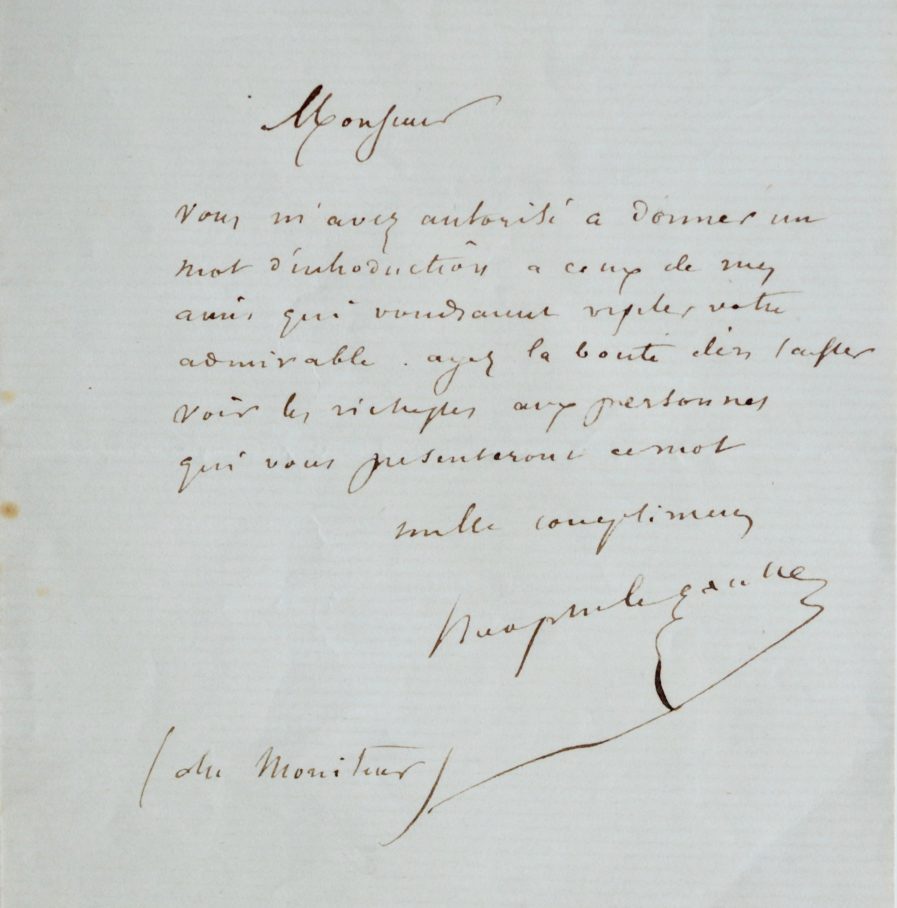 Monsieur
vous m'avez autorisé a donner un
mot d'introduction a ceux de mes
amis qui voudraient visiter votre
admirable. ayez la bonté d'en laisser
voir les richesses aux personnes
qui vous presenteront ce mot
mille complimens
theophile gautier
(du Moniteur)